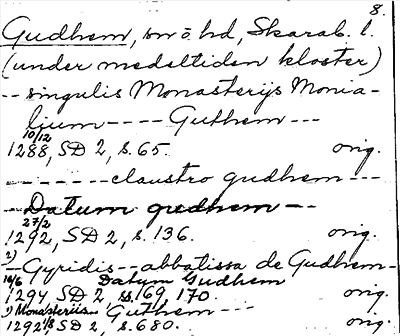 8.
Gudhem, sn o. hd, Skarab. l.
(under medeltiden kloster)
-- singulis Monasterijs Monia-
lium ---- Guthem ---
10/12
1288, SD 2, s. 65. orig.
-------- claustro gudhem ---
-- Datum gudhem --
27/2
1292, SD 2, s. 136. orig.
2)
-- Gyridis -- abbatissa de Gudhem -
16/6 Datum Gudhem
1294, SD 2, ss. 169, 170. orig.
1) Monasteriis -- Guthem ---
1292 SD 2, s. 680. orig.